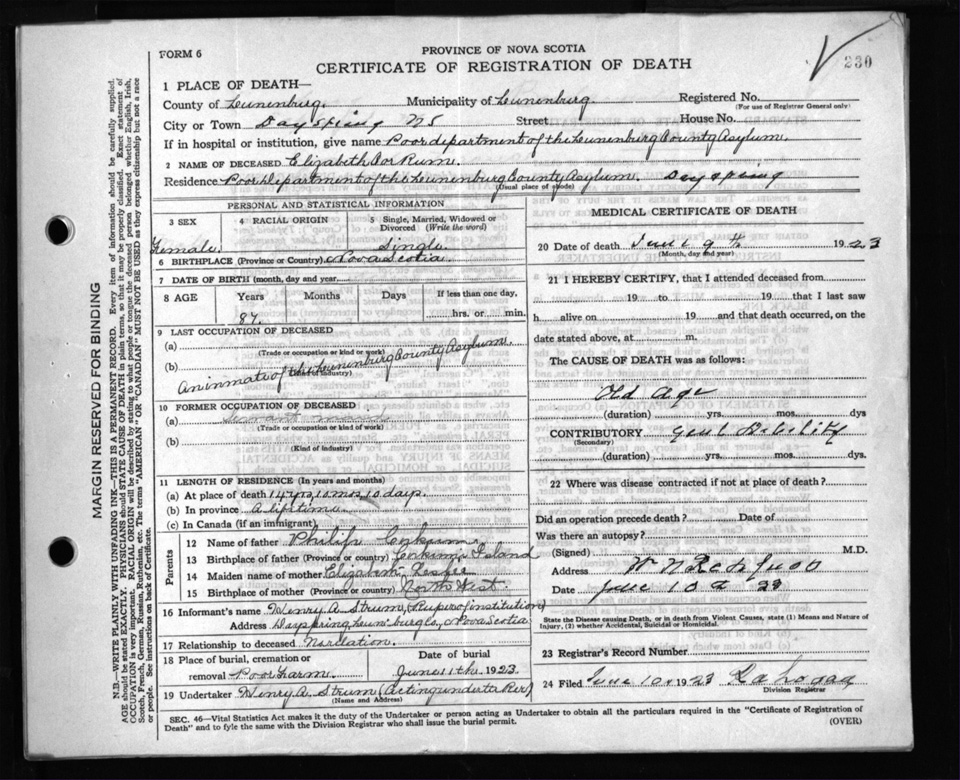 230
FORM 6
PROVINCE OF NOVA SCOTIA
CERTIFICATE OF REGISTRATION OF DEATH
MARGIN RESERVED FOR BINDING
N.B.—WRITE PLAINLY WITH UNFADING INK—THIS IS A PERMANENT RECORD. Every item of information should be carefully supplied.
AGE should be stated EXACTLY. PHYSICIANS should STATE CAUSE OF DEATH in plain terms, so that it may be properly classified. Exact statement of
OCCUPATION is very important. RACIAL ORIGIN will be described by stating to what people or tongue the deceased person belonged, whether English, Irish,
Scotch, French, German, Russian, Ruthenian, etc. The terms "AMERICAN" or "CANADIAN" MUST NOT BE USED as they express citizenship but not a race
or people. See instructions on back of Certificate.
1 PLACE OF DEATH—
County of Lunenburg. Municipality of Lunenburg. Registered No.
(For use of Registrar General only)
City or Town Dayspring NS Street House No.
If in hospital or institution, give name Poor department of the Lunenburg County Asylum.
2 NAME OF DECEASED Elizabeth
Residence Poor Department of the Lunenburg County Asylum. Dayspring
(Usual place of abode)
PERSONAL AND STATISTICAL INFORMATION
3 SEX 4 RACIAL ORIGIN 5 Single, Married, Widowed or Divorced (Write the word)
Female Single
6 BIRTHPLACE (Province or Country) Nova Scotia
7 DATE OF BIRTH (month, day and year)
8 AGE Years Months Days If less than one day,
87. hrs. or min.
9 LAST OCCUPATION OF DECEASED
(a)
(Trade or occupation or kind or work)
(b) An inmate of the Lunenburg County Asylum.
(Kind of industry)
10 FORMER OCCUPATION OF DECEASED
(a) Servant
(Trade or occupation or kind of work)
(b)
(Kind of industry)
11 LENGTH OF RESIDENCE (In years and months)
(a) At place of death 14 yrs, 10 mos, 10 days.
(b) In province A lifetime
(c) In Canada (if an immigrant)
Parents
12 Name of father Philip
13 Birthplace of father (Province or country) Island
14 Maiden name of mother Elizabeth
15 Birthplace of mother (Province or country) North West
16 Informant's name Henry A. Strum, (Super of institution)
Address Dayspring, Lunenburg Co, Nova Scotia
17 Relationship to deceased No relation.
18 Place of burial, cremation or removal Poor Farm. Date of burial June 11th 1923.
19 Undertaker Henry A. Strum (Acting undertaker)
(Name and Address)
MEDICAL CERTIFICATE OF DEATH
20 Date of death June 9th 1923
(Month, day and year)
21 I HEREBY CERTIFY, that I attended deceased from
19 to 19 that I last saw
h alive on 19 and that death occurred, on the
date stated above, at m.
The CAUSE OF DEATH was as follows:
Old Age
(duration) yrs. mos. dys
CONTRIBUTORY Genl Debility
(Secondary)
(duration) yrs. mos. dys.
22 Where was disease contracted if not at place of death?
Did an operation precede death? Date of
Was there an autopsy?
(Signed) M.D.
Address
Date June 10 23
State the Disease causing Death, or in death from Violent Causes, state (1) Means and Nature of Injury, (2) whether Accidental, Suicidal or Homicidal.
23 Registrar's Record Number
24 Filed June 10 1923
Division Registrar
SEC. 46—Vital Statistics Act makes it the duty of the Undertaker or person acting as Undertaker to obtain all the particulars required in the "Certificate of Registration of
Death" and to fyle the same with the Division Registrar who shall issue the burial permit. (OVER)